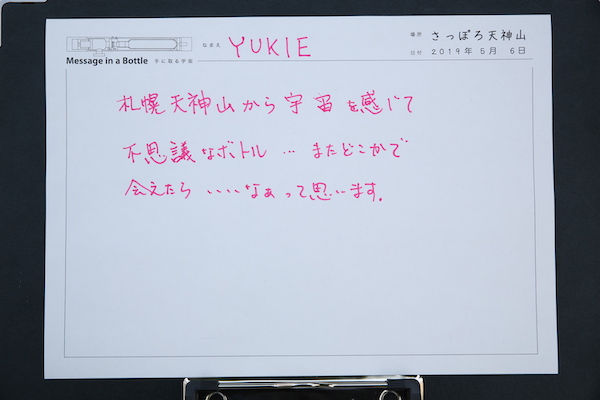 なまえ YUKIE
場所 さっぽろ天神山
Message in a Bottle 手に取る宇宙
日付 2019年5月6日
札幌天神山から宇宙を感じて
不思議なボトル…またどこかで
会えたらいいなぁって思います。